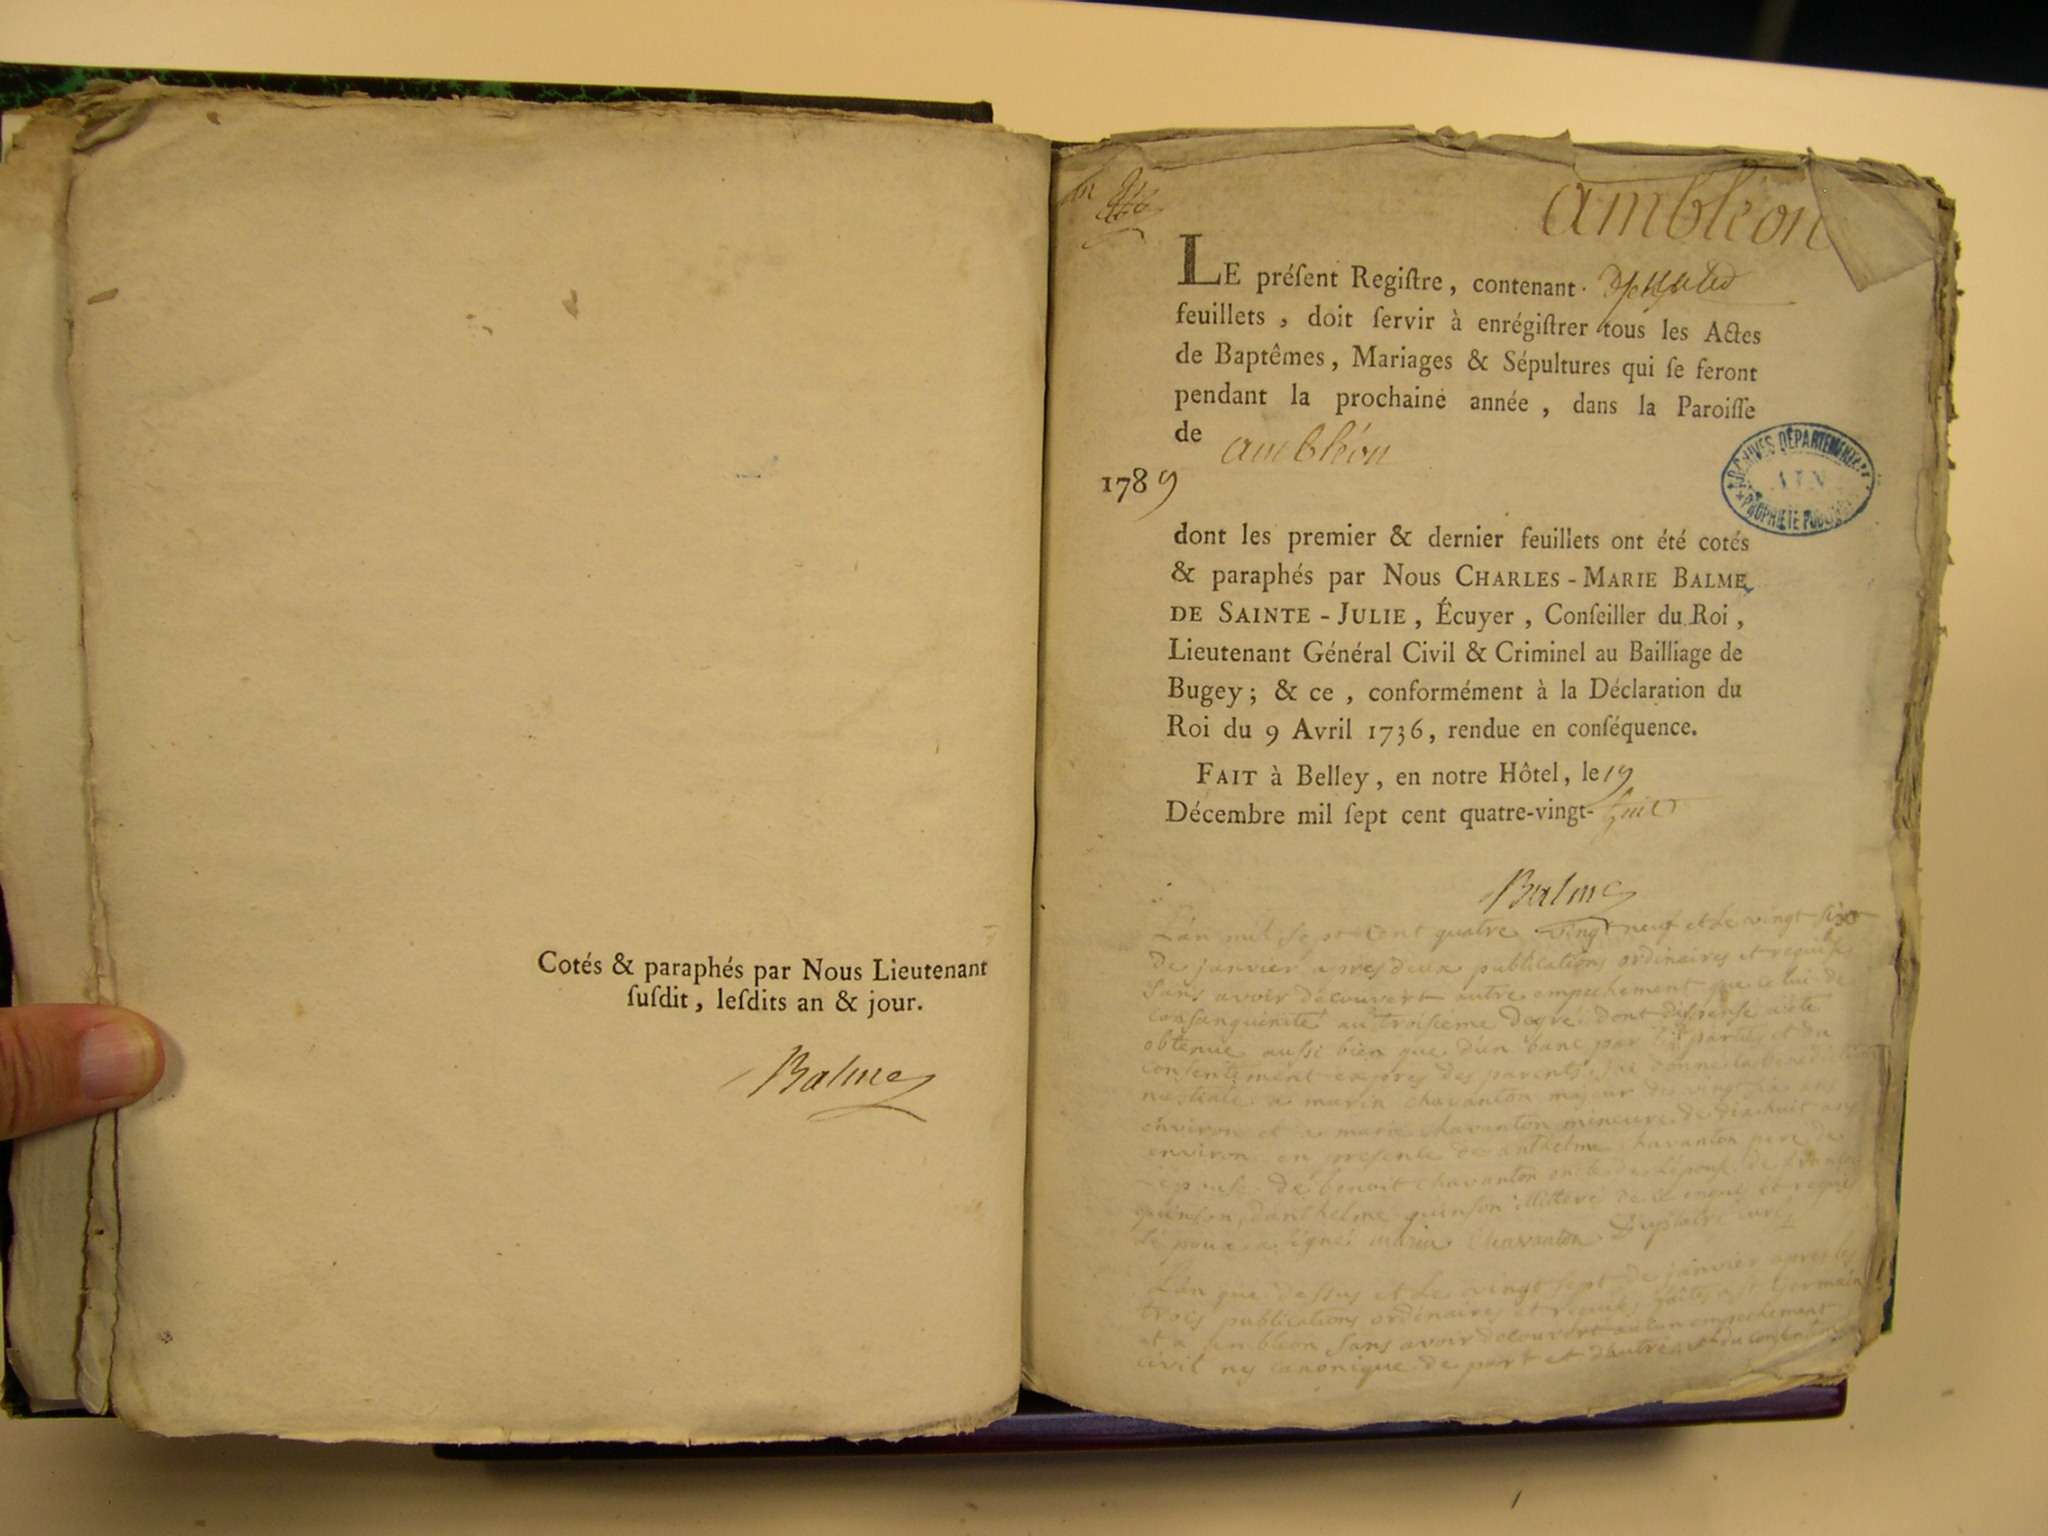 Cotés & paraphés par Nous Lieutenant
ſuſdit, leſdits an & jour.
Balme
ambléon
LE préſent Regiſtre, contenant
feuillets, doit ſervir à enrégiſtrer tous les Actes
de Baptêmes, Mariages & Sépultures qui ſe feront
pendant la prochaine année, dans la Paroiſſe
de ambléon
1789
ARCHIVES DÉPARTEMENTALES
AIN
PROPRIÉTÉ PUBLIQUE
dont les premier & dernier feuillets ont été cotés
& paraphés par Nous CHARLES-MARIE BALME
DE SAINTE-JULIE, Écuyer, Conſeiller du Roi,
Lieutenant Général Civil & Criminel au Bailliage de
Bugey; & ce, conformément à la Déclaration du
Roi du 9 Avril 1736, rendue en conſéquence.
FAIT à Belley, en notre Hôtel, le 19
Décembre mil ſept cent quatre-vingt-huit
Balme
L'an mil sept cent quatre vingt neuf et le vingt six
de janvier apres deux publications ordinaires et requises
sans avoir découvert autre empechement que celui de
consanguinité au troisième degré dont dispense a été
obtenue aussi bien que d'un banc par les parties et du
consentement exprès des parents, j'ai donné la bénédiction
nuptiale a marin chavanton majeur de vingt six ans
environ et a marie chavanton mineure de dix huit ans
environ en presence de anthelme chavanton pere de
l'epouse de benoit chavanton oncle de l'epouse de
quinson, d'anthelme quinson illitéré de ce enquis et requis
l'epoux a signé marin chavanton curé
L'an que dessus et le vingt sept de janvier apres les
trois publications ordinaires et requises faites a st germain
et a ambléon sans avoir découvert aucun empechement
civil ny canonique de part et d'autre, et du consentement